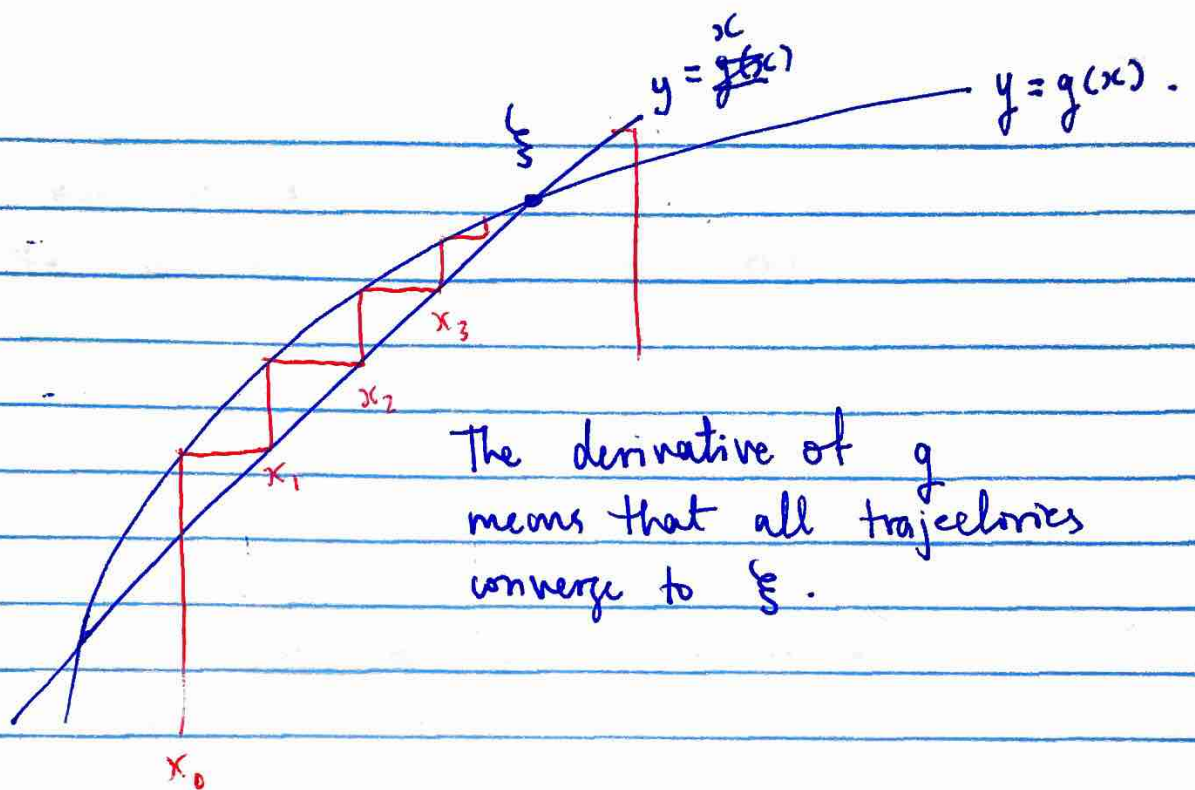 x
y = g(x)
y = g(x).
ξ
x3
x2
x1
The derivative of g
means that all trajectories
converge to ξ.
x0